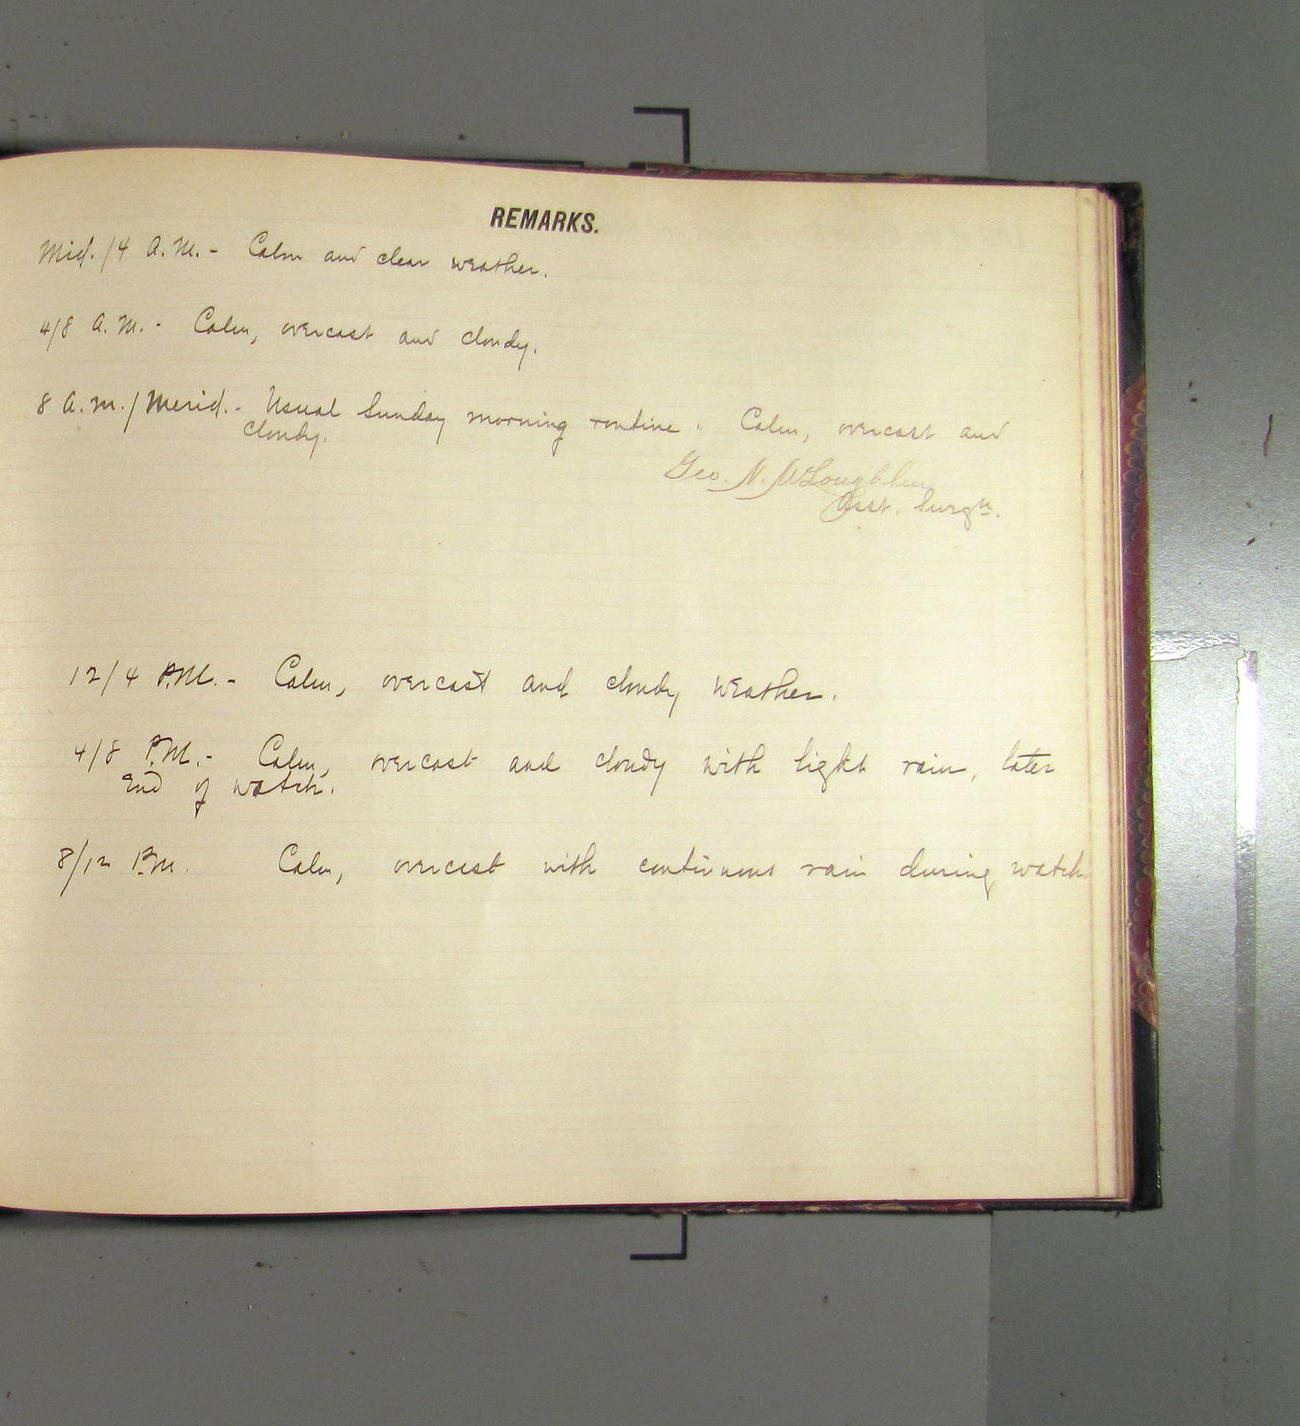 REMARKS.
Mid./4 A.M. - Calm and clear weather.
4/8 A.M. - Calm, overcast and cloudy.
8 A.M./Merid. - Usual Sunday morning routine. Calm, overcast and
cloudy.
Geo. N. McLoughlin
Asst. Surgn.
12/4 P.M. - Calm, overcast and cloudy weather.
4/8 P.M. - Calm, overcast and cloudy with light rain, later
End of watch.
8/12 P.M. Calm, overcast with continuous rain during watch.